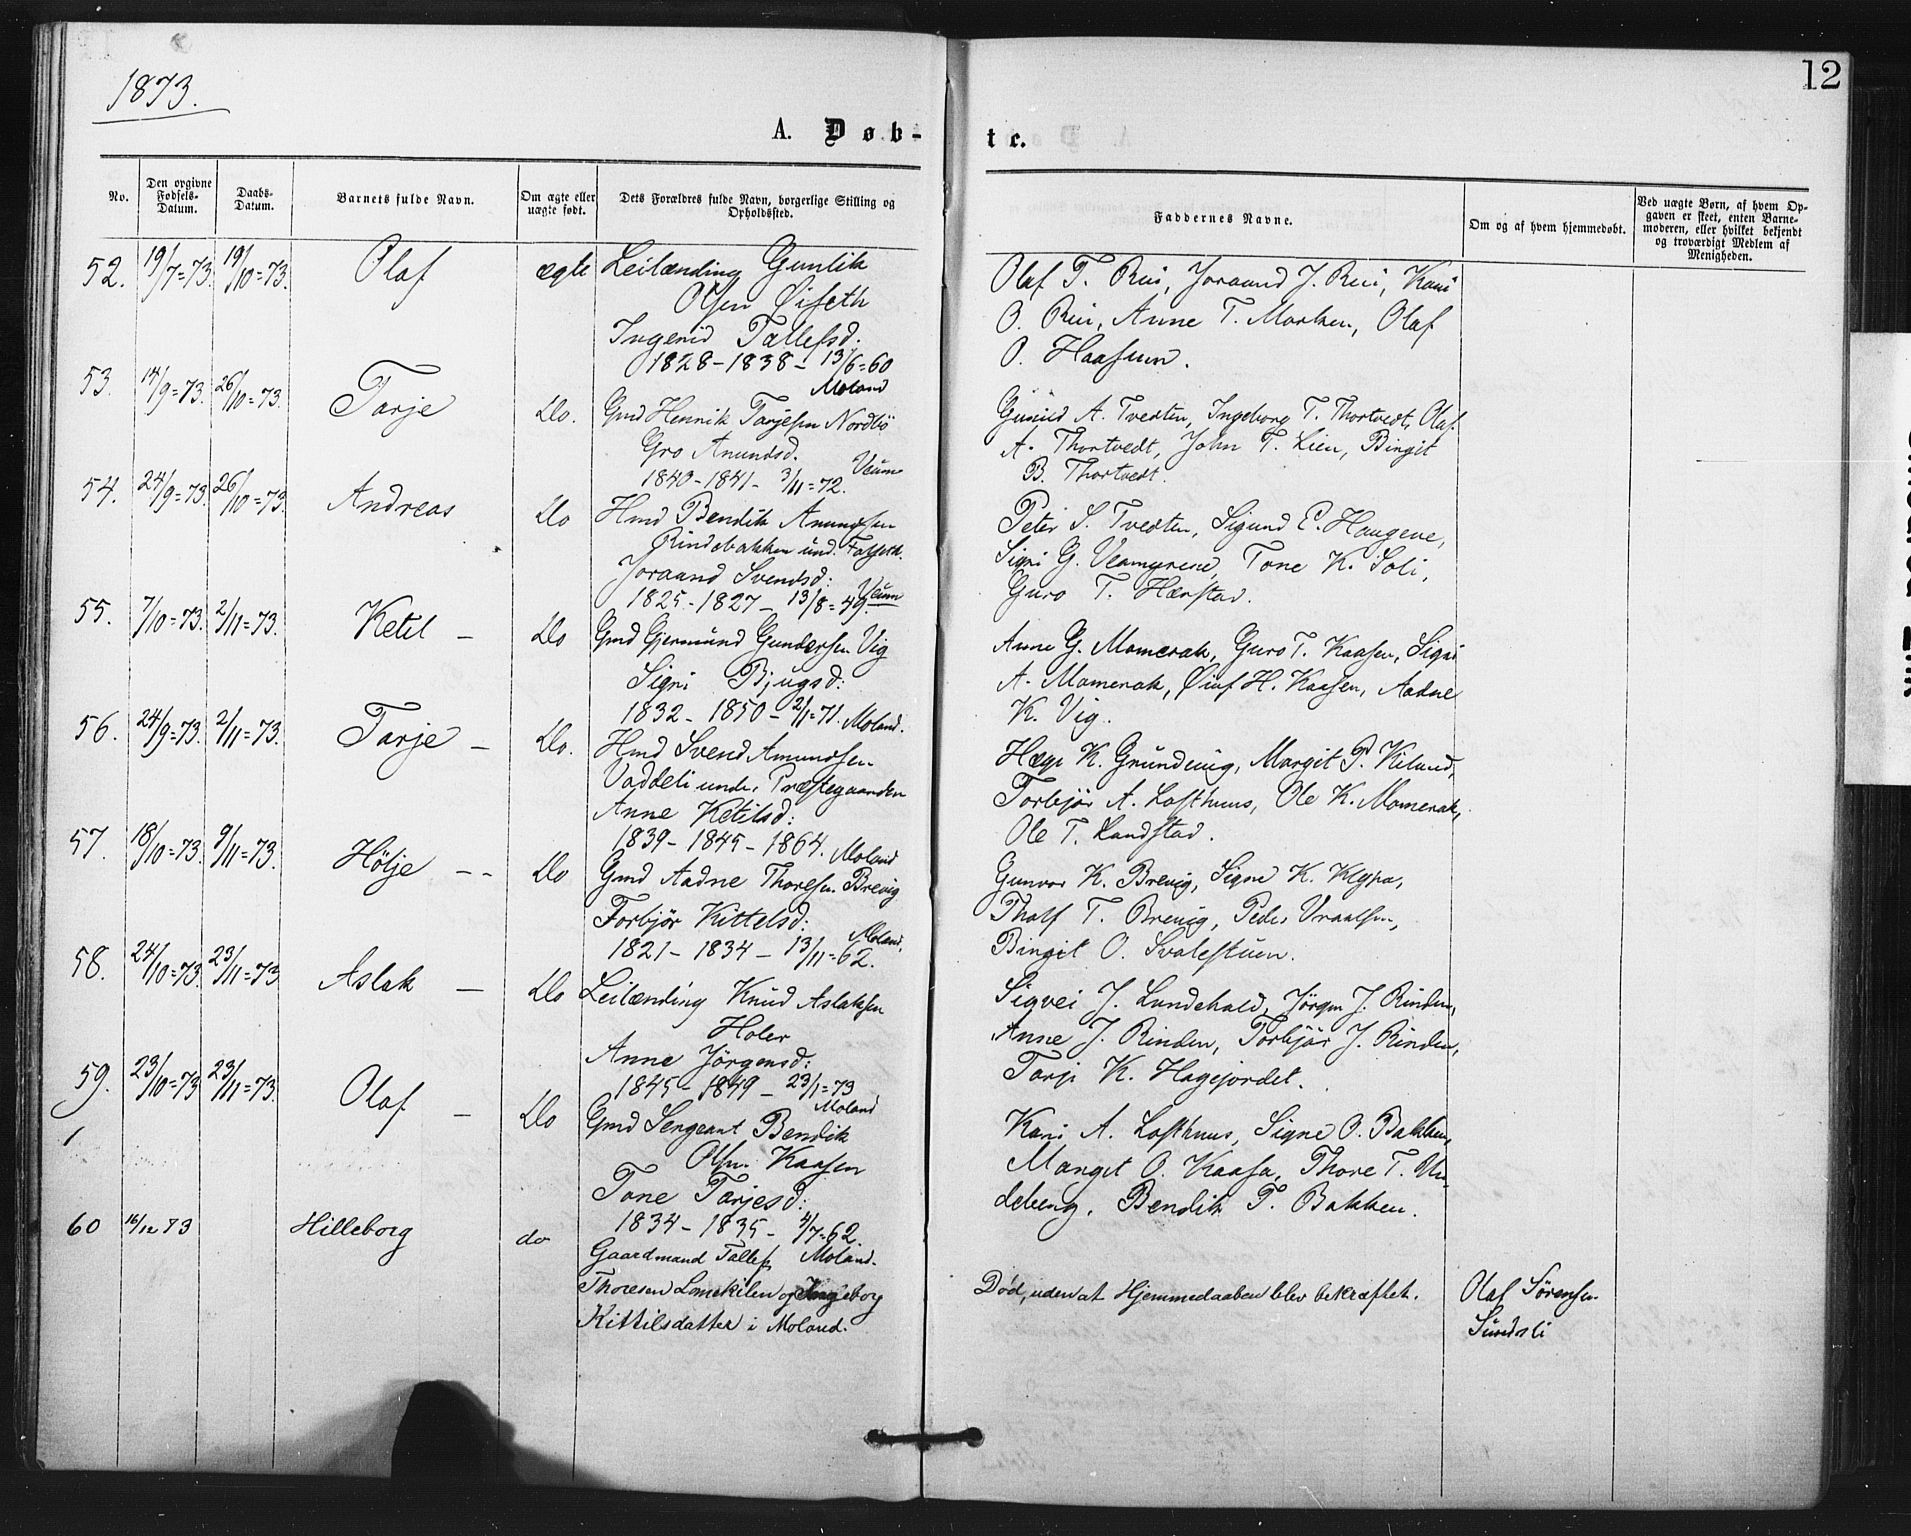 1873.
12
A. Døb-
te.
No.
Den opgivne Fødsels-Datum.
Daabs-Datum.
Barnets fulde Navn.
Om ægte eller uægte født.
Dets Forældres fulde Navn, borgerlige Stilling og Opholdssted.
Faddernes Navne.
Om og af hvem hjemmedøbt.
Ved uægte Børn, af hvem Opgaven er skeet, enten Barnemoderen, eller hvilket bekjendt og troværdigt Medlem af Menigheden.
52. 19/7=73. 19/10=73. Olaf ægte Leilænding Gunlik
Olsen Øifeth
Ingerid Tallefsd:
1828 - 1838 - 13/6=60
Moland
Olaf T. Rui, Joraand J. Rui, Kari
O. Rui, Anne T. Morken, Olaf
O. Haasum.
53. 14/9=73. 26/10=73. Tarje Do. Gmd Henrik Tarjesen Nordbö
Gro Amundsd.
1840 - 1841 - 3/11=72. Veum
Gunild A. Tvedten, Ingeborg T. Thortvedt, Olaf
A. Thortvedt, John T. Lien, Bingit
B. Thortvedt.
54. 24/9=73. 26/10=73. Andreas Do Hmd Bendik Amundsen
Rindebakken und.
Joraand Svendsd:
1825 - 1827 - 13/8=49. Veum
Peter S. Tvedten, Sigund E. Haugene,
Signi G. Tone K. Soli,
Guro T. Hærstad.
55. 7/10=73. 2/11=73. Ketil - Do Gmd Gjermund Gundersen Vig
Signi Bjugsd:
1832 - 1850 - 2/1=71. Moland.
Anne G. Momerak, Guro T. Kaasen, Signi
A. Momerak, H. Kaasen, Aadne
K. Vig.
56. 24/9=73. 2/11=73. Tarje - Do. Hmd Svend Amundsen
Vaddeli under Præstegaarden
Anne Ketilsd:
1839 - 1845 - 1864. Moland
Hæge K. Grundevig, Margit P. Kilund,
Torbjör A. Lofthuus, Ole K. Momerak,
Ole T. Landstad.
57. 18/10=73. 9/11=73. Hölje - - Do Gmd Aadne Thoresen Brevig
Torbjör Kittelsd:
1821 - 1834 - 13/11=62. Moland.
Gunvor K. Brevig, Signe K. Klypa,
Tholf T. Brevig, Peder Vraalsen,
Bingit O. Svalestuen.
58. 24/10=73. 23/11=73 Aslak - Do Leilænding Knud Aslaksen
Holer
Anne Jörgensd:
1845 - 1849 - 23/1=73
Moland
Sigvei J. Lundehald, Jörgen J. Rinden,
Anne J. Rinden, Torbjör J. Rinden,
Tarje K. Hagejordet.
59. 23/10=73 23/11=73. Olaf - Do Gmd Sergeant Bendik
Olsen Kaasen
Tone Tarjesd:
1834 - 1835 - 4/7=62.
Moland.
Kari A. Lofthuus, Signe O. Bakken,
Margit O. Kaasa, Thore T. Un-
debeng, Bendik T. Bakken.
60 16/12 73 Hilleborg do Gaardmand Tallef
Thoresen Lonekilen og Ingeborg
Kittilsdatter i Moland.
Død, uden at Hjemmedaaben blev bekræftet.
Olaf Sörensen
Sundsli